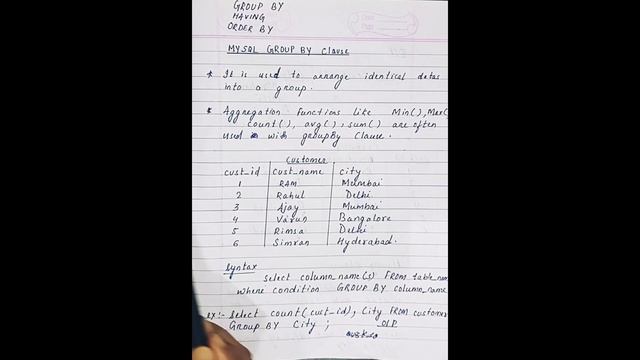 GROUP BY
HAVING
ORDER BY
MYSQL GROUP BY Clause
* It is used to arrange identical datas
into a group.
* Aggregation functions like Min(), Max(
count(), avg(), sum() are often
used with groupBy Clause.
Customer
cust_id cust_name city
1 RAM Mumbai
2 Rahul Delhi
3 Ajay Mumbai
4 Varun Bangalore
5 Rimsa Delhi
6 Simran Hyderabad.
Syntax
Select column_name(s) FROM table_nam
where condition GROUP BY column_name
ex:- Select count(cust_id), City FROM customer
Group BY City ; O/P